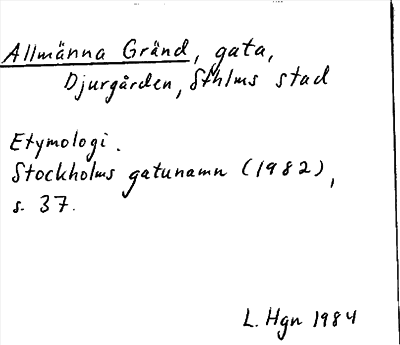 Allmänna Gränd, gata,
Djurgården, Sthlms stad
Etymologi.
Stockholms gatunamn (1982),
s. 37.
L. Hgn 1984